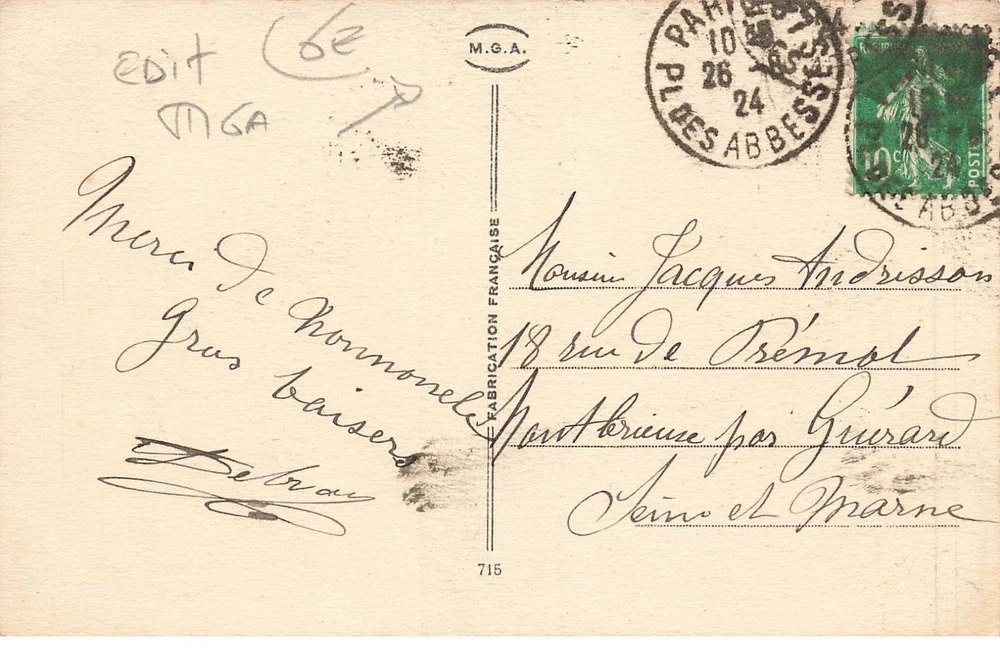 EDIT 6E
MGA
M.G.A.
PARIS
10
26
24
PL. DES ABBESSES
10c
POSTES
18
26
24
Merci de Nonnonele
Gros baisers
Debray
FABRICATION FRANÇAISE
Monsieur Jacques Andrisson
18 rue de Prémol
Montbrieuse par Guérard
Seine et Marne
715